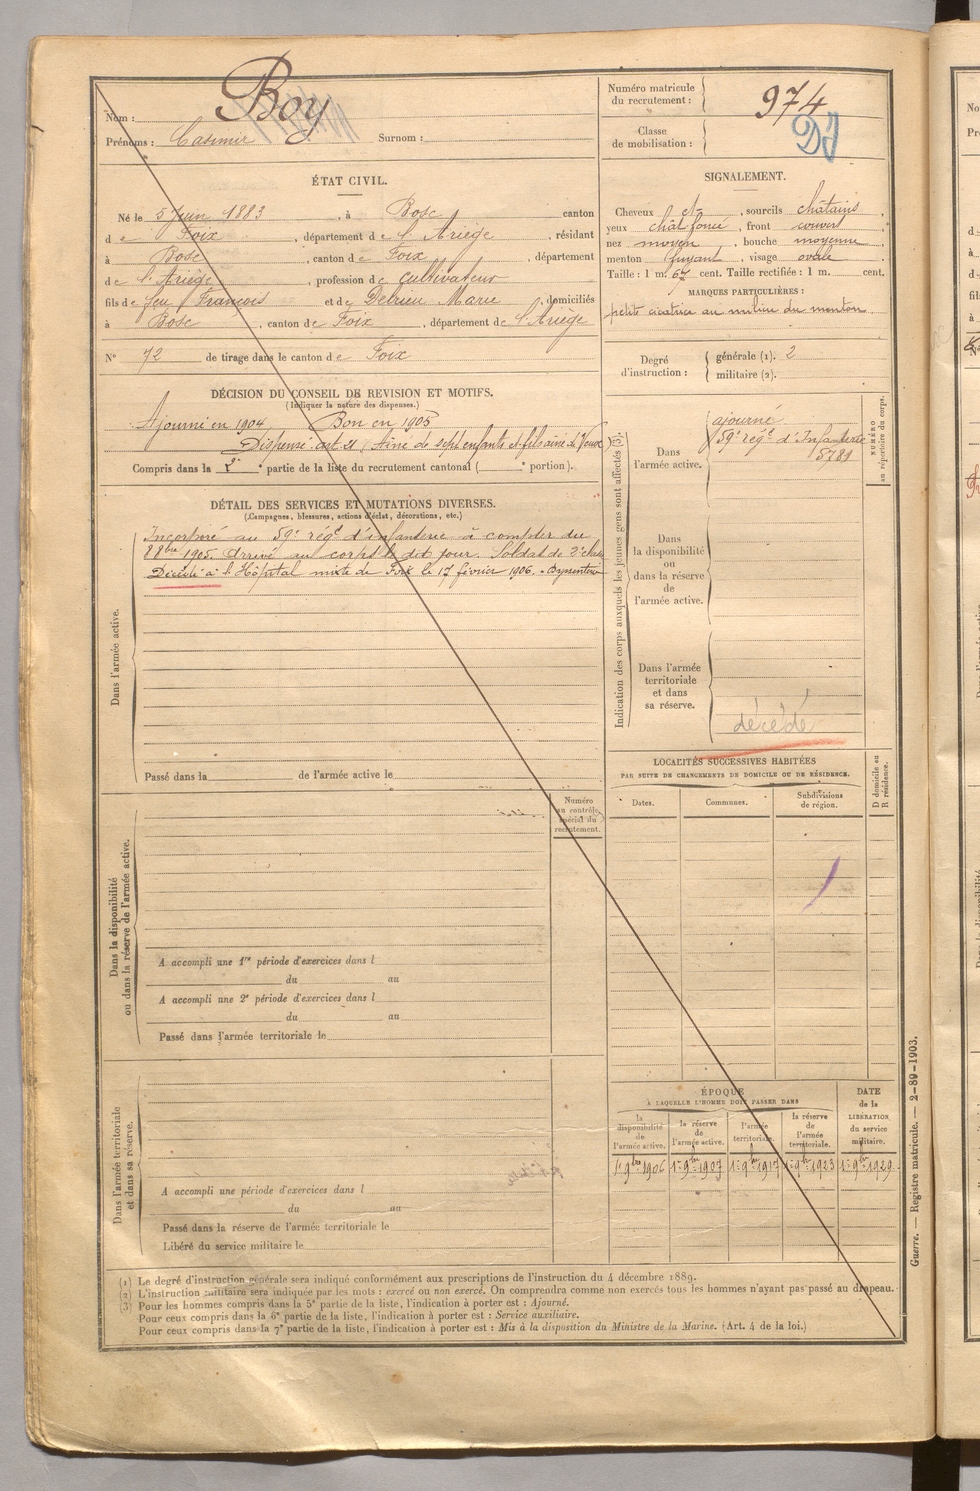 Nom : Boy
Prénoms : Casimir Surnom :
ÉTAT CIVIL.
Né le 5 Juin 1883, à Bosc canton
de Foix, département de l'Ariège, résidant
à Bosc, canton de Foix, département
de l'Ariège, profession de cultivateur
fils de feu François et de Derieu Marie, domiciliés
à Bosc, canton de Foix, département de l'Ariège
N° 72 de tirage dans le canton de Foix
DÉCISION DU CONSEIL DE REVISION ET MOTIFS.
(Indiquer la nature des dispenses.)
Ajourné en 1904 Bon en 1905
Dispensé art 21 (Aîné de sept enfants et fils aîné de Veuve
Compris dans la 2e partie de la liste du recrutement cantonal ( portion).
DÉTAIL DES SERVICES ET MUTATIONS DIVERSES.
(Campagnes, blessures, actions d'éclat, décorations, etc.)
Incorporé au 59e régt d'infanterie à compter du
8 8bre 1905. Arrivé au corps le dit jour. Soldat de 2e classe
Décédé à l'Hôpital mixte de Foix le 17 février 1906.
Dans l'armée active.
Passé dans la de l'armée active le
Numéro
au contrôle
spécial du
recrutement.
Dans la disponibilité
ou dans la réserve de l'armée active.
A accompli une 1re période d'exercices dans l
du au
A accompli une 2e période d'exercices dans l
du au
Passé dans l'armée territoriale le
Dans l'armée territoriale
et dans sa réserve.
A accompli une période d'exercices dans l
du au
Passé dans la réserve de l'armée territoriale le
Libéré du service militaire le
Numéro matricule
du recrutement : 974
Classe
de mobilisation :
SIGNALEMENT.
Cheveux et, sourcils châtains,
yeux chât foncé, front couvert
nez moyen, bouche moyenne
menton fuyant, visage ovale
Taille : 1 m. 67 cent. Taille rectifiée : 1 m. cent.
MARQUES PARTICULIÈRES :
petite cicatrice au milieu du menton
Degré
d'instruction :
générale (1). 2
militaire (2).
Indication des corps auxquels les jeunes gens sont affectés (3).
NUMÉRO
au répertoire du corps.
Dans
l'armée active.
ajourné
59e régt d'Infanterie
5781
Dans
la disponibilité
ou
dans la réserve
de
l'armée active.
Dans l'armée
territoriale
et dans
sa réserve.
décédé
LOCALITÉS SUCCESSIVES HABITÉES
PAR SUITE DE CHANGEMENTS DE DOMICILE OU DE RÉSIDENCE.
D domicile ou
R résidence.
Dates. Communes. Subdivisions
de région.
ÉPOQUE
À LAQUELLE L'HOMME DOIT PASSER DANS
la
disponibilité
de
l'armée active.
la réserve
de
l'armée active.
l'armée
territoriale.
la réserve
de
l'armée
territoriale.
DATE
de la
LIBÉRATION
du service
militaire.
1er 9bre 1906 1er 9bre 1907 1er 9bre 1917 1er 9bre 1923 1er 9bre 1929
(1) Le degré d'instruction générale sera indiqué conformément aux prescriptions de l'instruction du 4 décembre 1889.
(2) L'instruction militaire sera indiquée par les mots : exercé ou non exercé. On comprendra comme non exercés tous les hommes n'ayant pas passé au drapeau.
(3) Pour les hommes compris dans la 5e partie de la liste, l'indication à porter est : Ajourné.
Pour ceux compris dans la 6e partie de la liste, l'indication à porter est : Service auxiliaire.
Pour ceux compris dans la 7e partie de la liste, l'indication à porter est : Mis à la disposition du Ministre de la Marine. (Art. 4 de la loi.)
Guerre. — Registre matricule. — 2-89-1903.